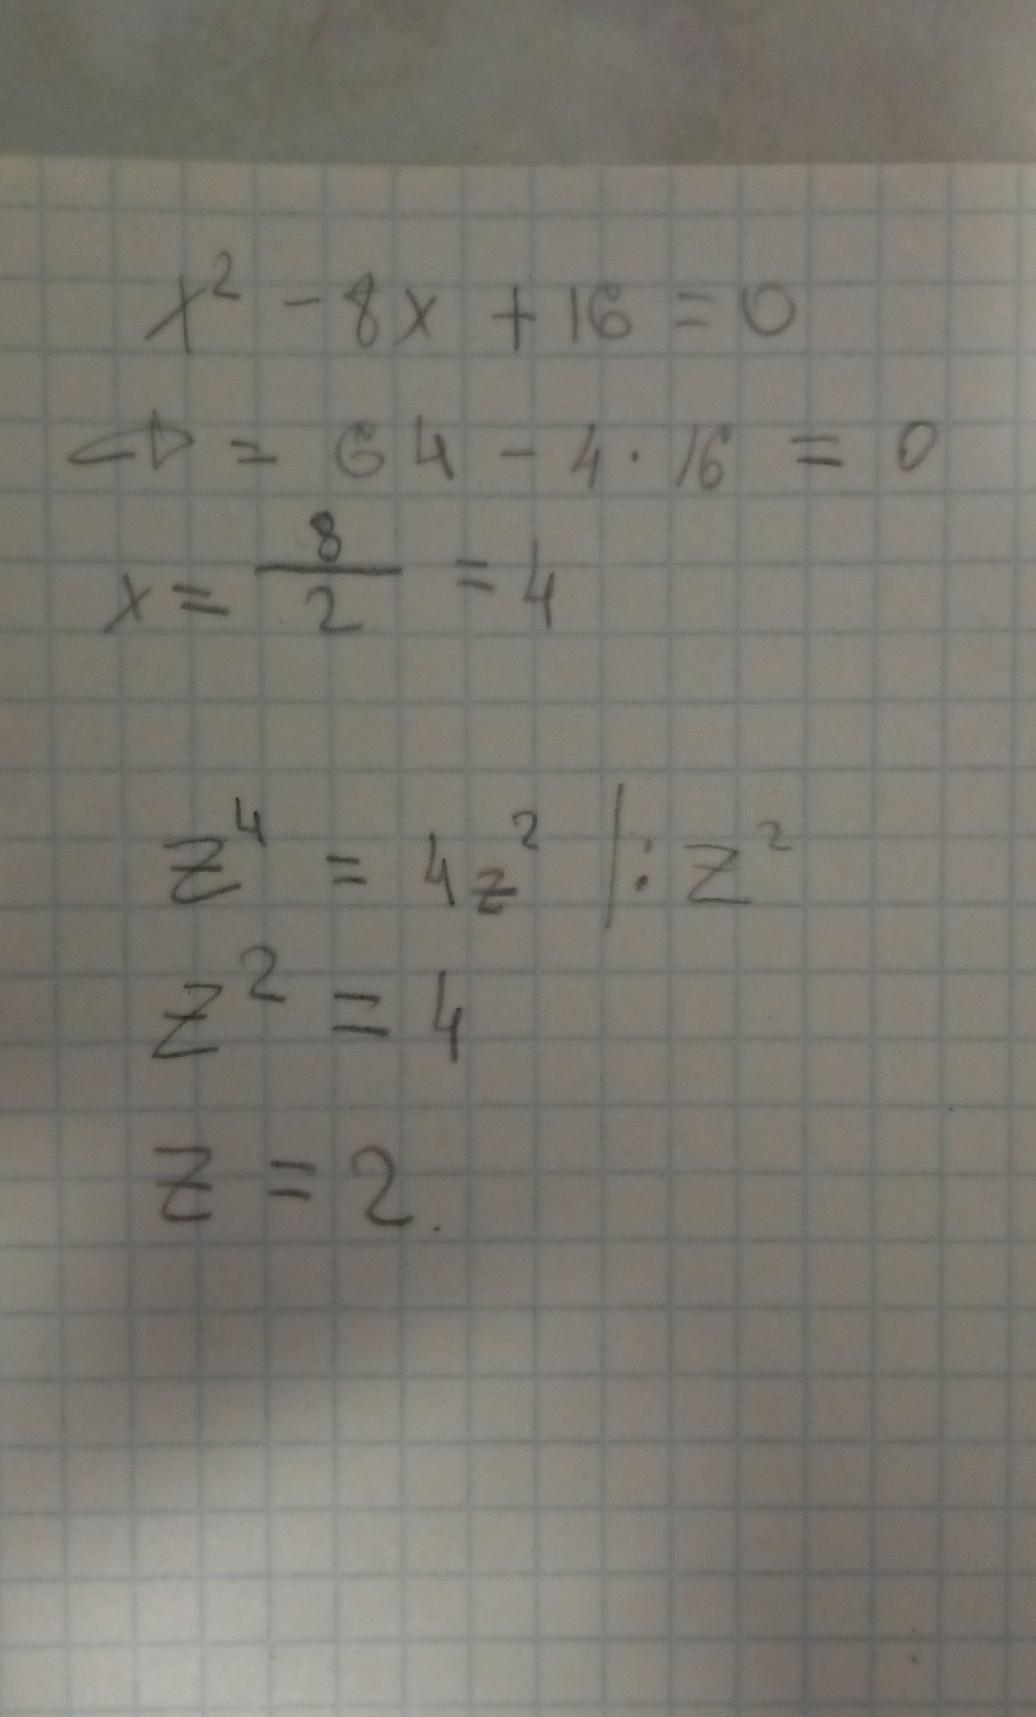 x² - 8x + 16 = 0
D = 64 - 4 · 16 = 0
x = 8/2 = 4
z⁴ = 4z² |: z²
z² = 4
z = 2.